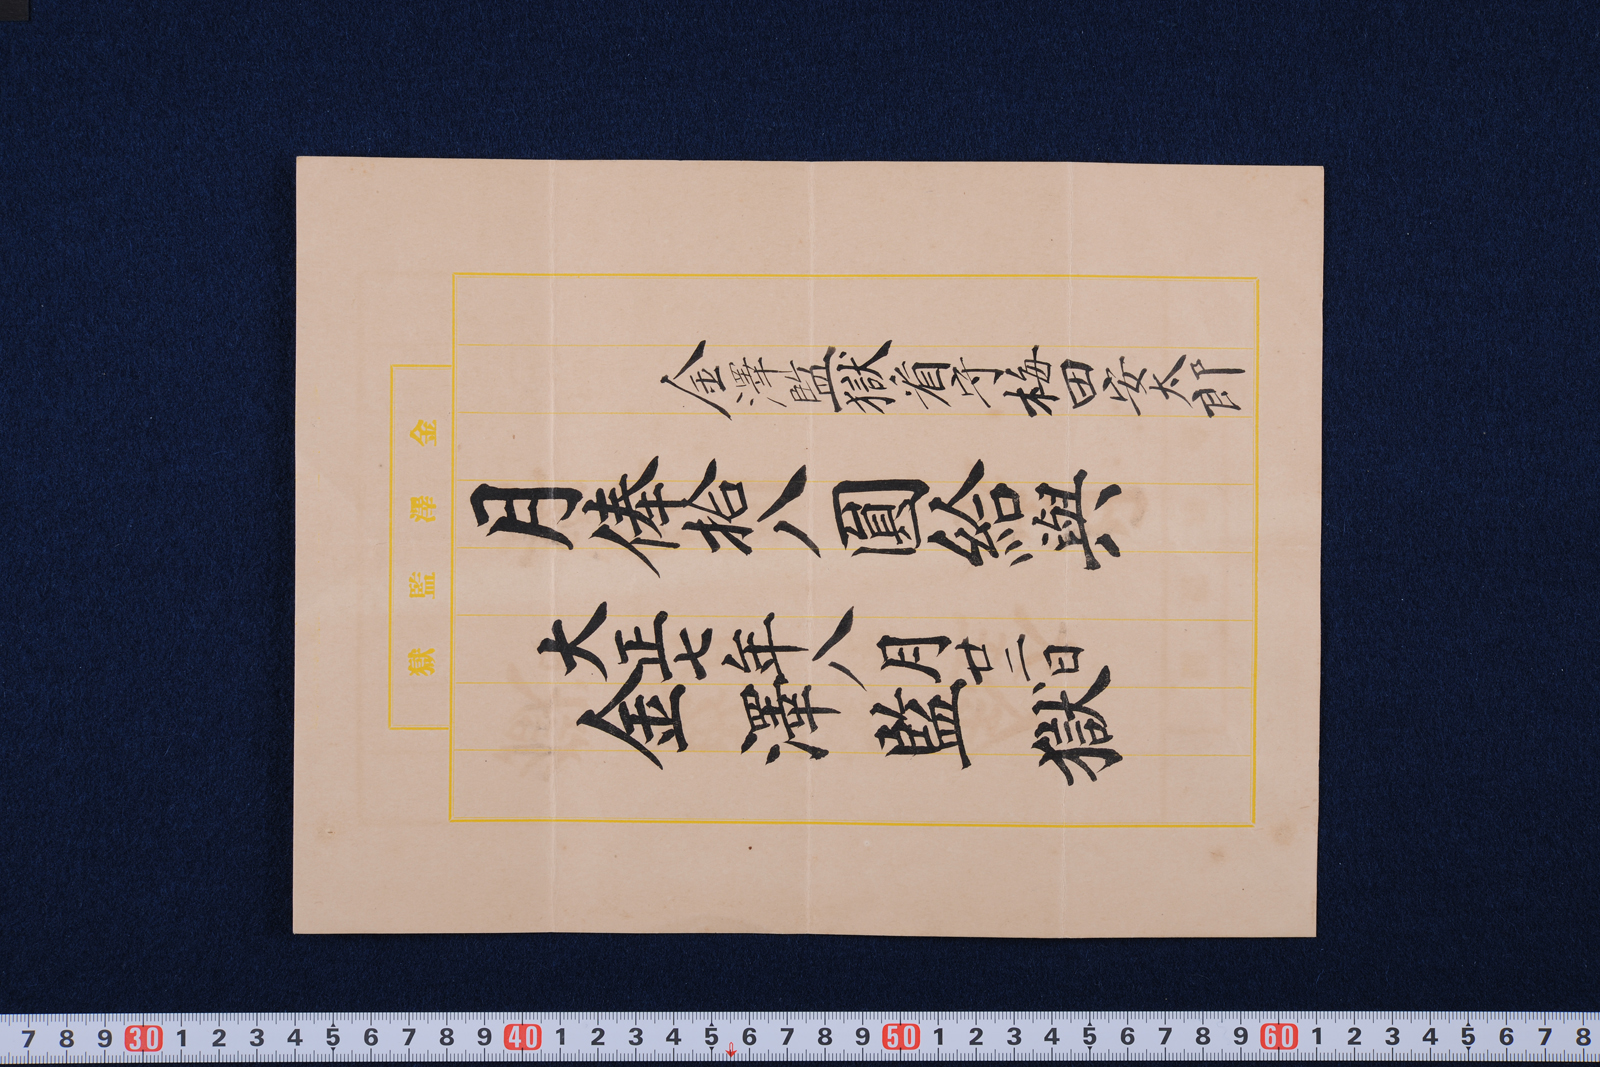 金澤監獄
金澤監獄看守梅田安太郎
月俸拾八圓給與
大正七年八月廿二日
金澤監獄
7 8 9 30 1 2 3 4 5 6 7 8 9 40 1 2 3 4 5 6 7 8 9 50 1 2 3 4 5 6 7 8 9 60 1 2 3 4 5 6 7 8